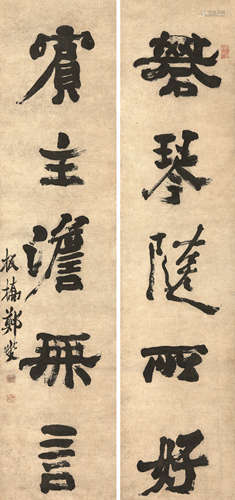 罄琴隨所好
賓主澹無言
板橋鄭燮